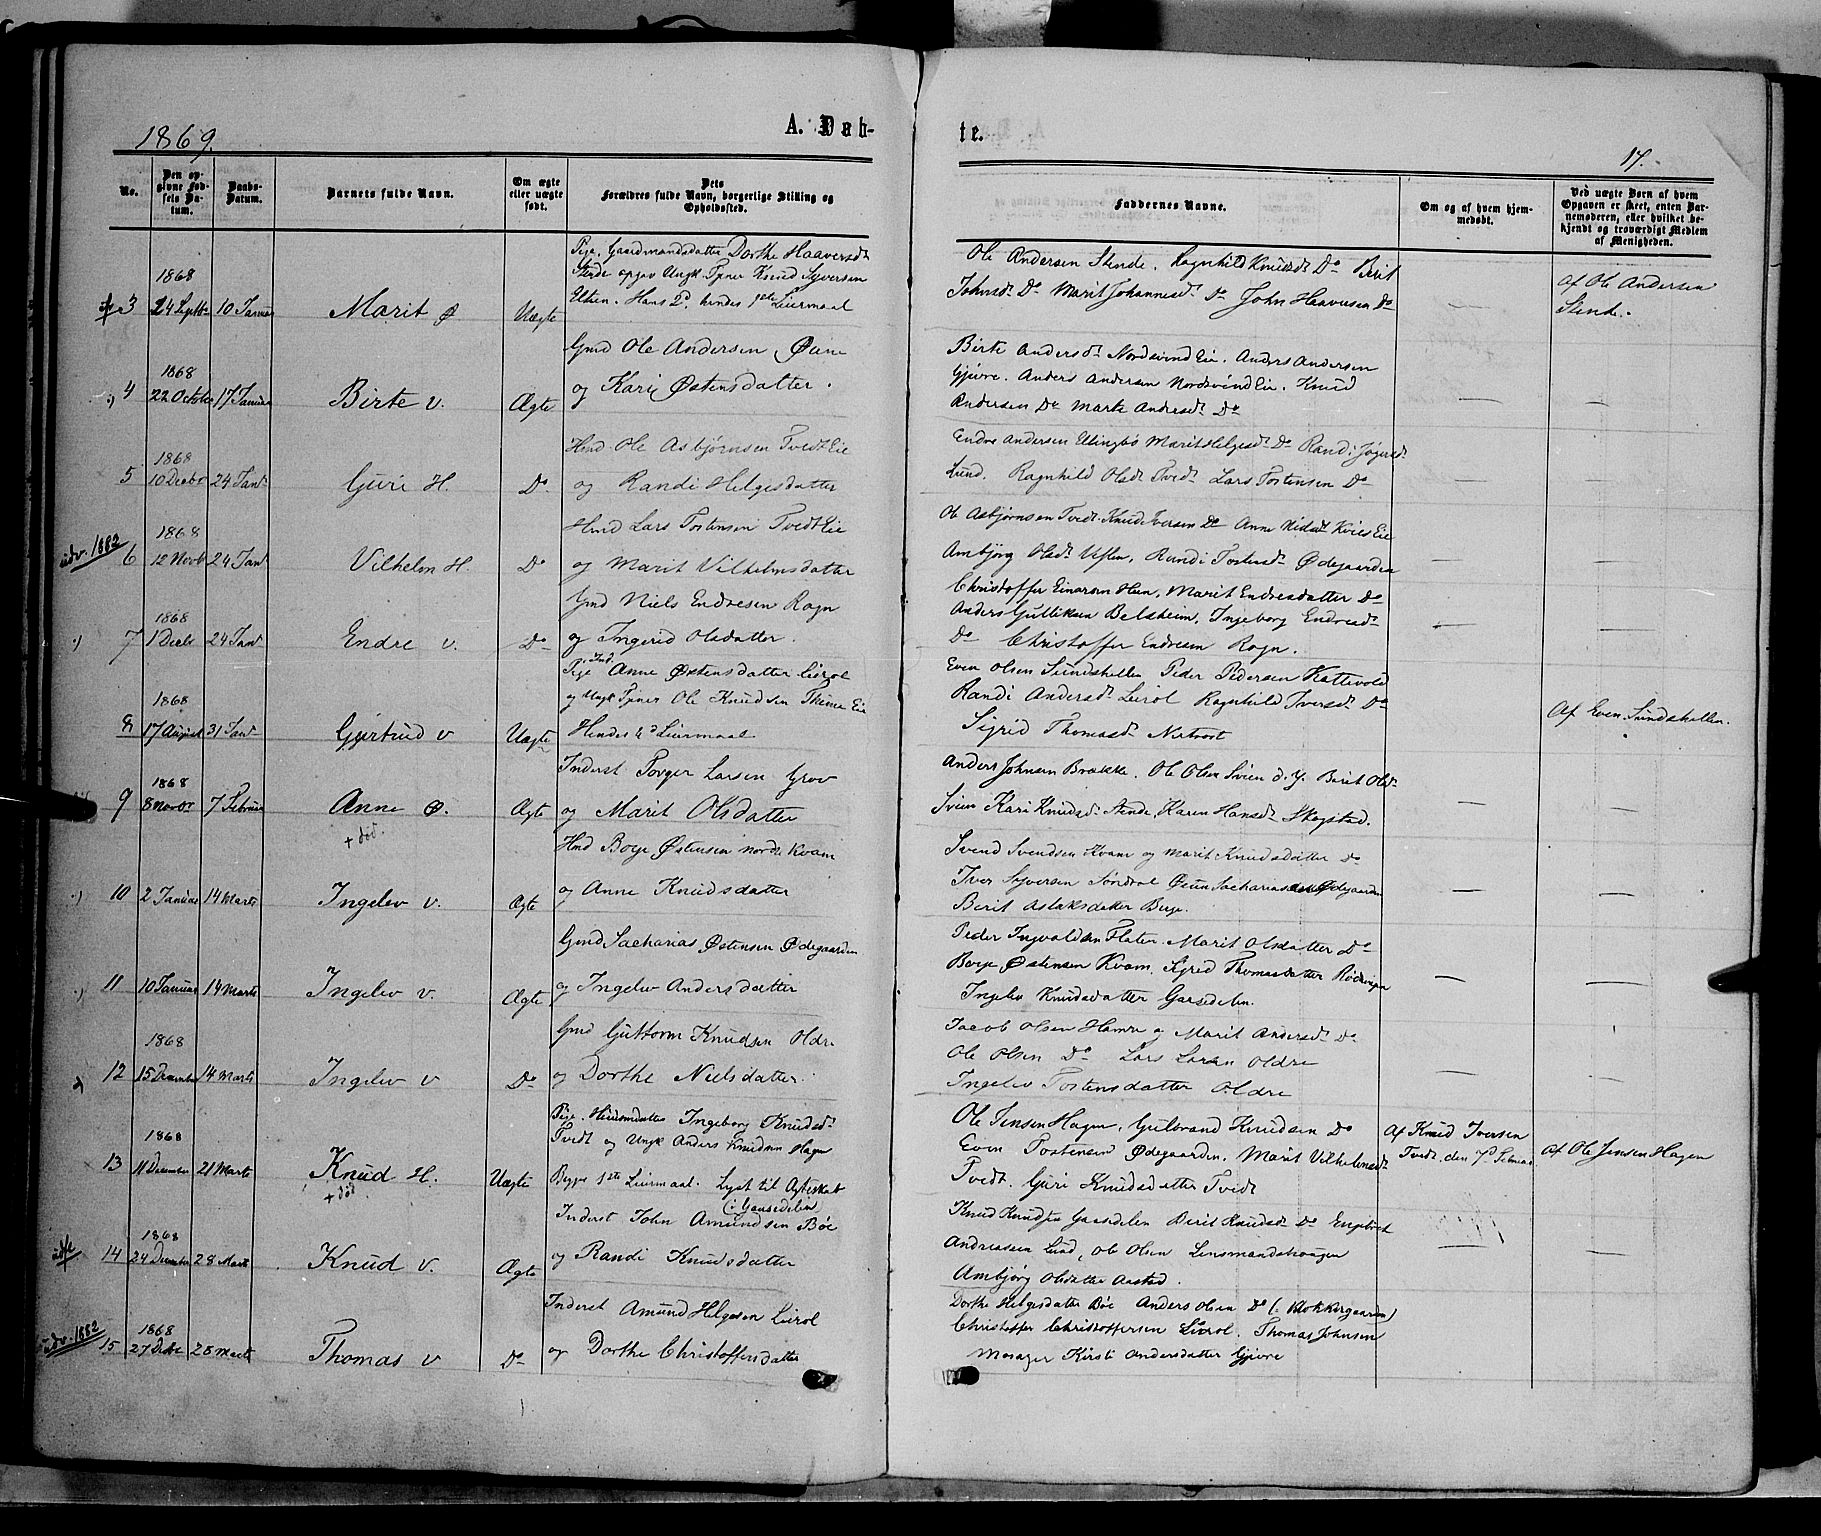 1869.
A. Døb-
te.
17.
No.
Den opgivne Fødsels Datum.
Daabs-Datum.
Barnets fulde Navn.
Om ægte eller uægte født.
Dets Forældres fulde Navn, borgerlige Stilling og Opholdssted.
Faddernes Navne.
Om og af hvem hjemmedøbt.
Ved uægte Børn af hvem Opgaven er skeet, enten Barnemoderen, eller hvilket bekjendt og troværdigt Medlem af Menigheden.
3 1868 24 Septbr 10 Januar Marit Ø Uægte
Pige, Gaardmandsdatter Dorthe Haaversdt
Stende opgav Ungk. Tjener Knud Syversen
Hans 2d hendes 1ste Leiermaal
Ole Andersen Stende. Ragnhild Knudsdt Do Berit
Johnsdt Do Marit Johannesdt Do John Haaversen Do
Af Ole Andersen
Stende.
4 1868 22 October 17 Januar Birte v. Ægte
Gmd Ole Andersen Øine
og Kari Østensdatter.
Birte Andersdt Nordsvind Eie. Anders Andersen
Gjevre. Anders Andersen Nordsvind Eie. Knud
Andersen Do Marte Andersdt Do
5 1868 10 Decbr 24 Jan Guri H. Do
Hmd Ole Asbjørnsen Tvedt Eie
og Randi Helgesdatter
Endre Andersen Ellingbø Marit Helgesdt Do Randi
Lund. Ragnhild Olsdt Tvedt Lars Tostensen Do
udv. 1882
6 1868 12 Novb 24 Jan Vilhelm H. Do
Hmd Lars Tostensen Tvedt Eie
og Marit Vilhelmsdatter
Ole Asbjørnsen Tvedt. Knud Iversen Do Anne
Ambjørg Olsdt Randi Ødegaarden
7 1868 1 Decbr 24 Jan Endre v. Do
Gmd Niels Endresen Rogn
og Ingerid Olsdatter.
Christoffer Einarsen Hein, Marit Endresdatter Do
Anders Gulliksen Belsheim, Ingeborg Endresdt
Do Christoffer Endresen Rogn.
8 1868 17 August 31 Jan Gjertrud v Uægte
Pige Ind. Anne Østensdatter Leirol
og Ungk Tjener Ole Knudsen Eie
Hendes Leiermaal
Even Olsen Sundshellen Peder Pedersen Kattevold
Randi Andersdt Leirol Ragnhild Iversdt Do
Sigrid Thomasdt
Af Even Sundshellen.
9 1868 8 Novbr 7 Februar Anne Ø. Ægte
+ død.
Inderst Torger Larsen Grov
og Marit Olsdatter
Anders Johnsen Brække. Ole Olsen Svien d. y. Berit Olsdt
Svien Kari Knudsdt Stende, Karen Hansdt Skogstad.
10 2 Januar 14 Marts Ingelev v. Ægte
Hmd Boye Østensen nordre Kvam
og Anne Knudsdatter
Svend Svendsen Kvam og Marit Knudsdatter Do
Iver Syversen Søndrol Øistein Sachariasen Ødegaarden
Berit Aslaksdatter Berge.
11 10 Januar 14 Marts Ingelev v. Ægte
Gmd Sacharias Østensen Ødegaarden
og Ingelev Andersdatter
Peder Ingvaldsen Flaten. Marit Olsdatter Do
Boye Østensen Kvam, Sigrid Thomasdatter
Ingelev Knudsdatter Garsedelen.
12 1868 15 December 14 Marts Ingelev v Do
Gmd Guttorm Knudsen Oldre
og Dorthe Nielsdatter.
Jacob Olsen Hamre og Marit Andersdt Do
Ole Olsen Do Lars Larsen Oldre
Ingelev Tostensdatter Oldre
13 1868 11 December 21 Marts Knud H. Uægte
+ død
Pige. Huusmdatter Ingeborg Knudsdt
Tvedt og Ungk Anders Knudsen Hagen
Begges 1ste Leiermaal. Lyst til Ægteskab
Ole Jensen Hagen, Gulbrand Knudsen Do
Even Tostensen Ødegaarden. Marit Vilhelmsdt
Tvedt. Guri Knudsdatter Tvedt
Af Knud Iversen
Tvedt. den 7de Februar
Af Ole Jensen Hagen
14 1868 24 December 28 Marts Knud v. Ægte
(i Garsedelen)
Inderst John Amundsen Bøe
og Randi Knudsdatter
Knud Knudsen Garsedelen Berit Knudsdt Do Engebret
Andreassen Lund, Ole Olsen Lensmandshaugen
Ambjørg Olsdatter Aastad.
udv. 1882
15 1868 27 Decbr 28 Marts Thomas v Do
Inderst Amund Helgesen Leirol
og Dorthe Christoffersdatter
Dorthe Helgesdatter Bøe Anders Olsen Do (Klokkergaarden)
Christoffer Christoffersen Leirol. Thomas Johnsen
Mosager Kirsti Andersdatter Gjevre